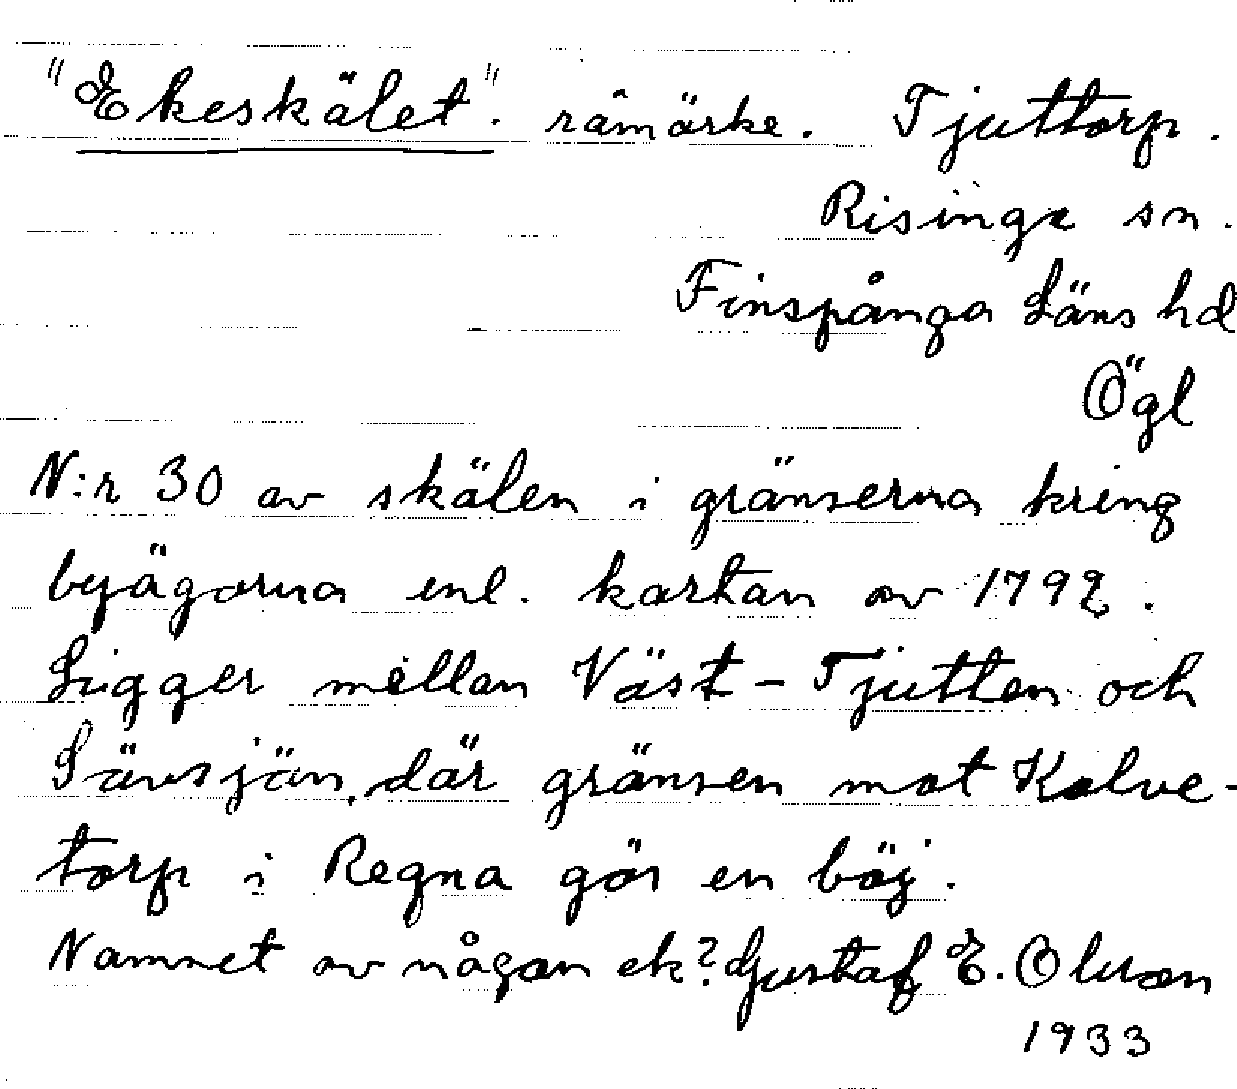 "Ekeskälet". råmärke. Tjuttorp.
Risinga sn.
Finspånga Läns hd
Ögl
N:r 30 av skälen i gränserna kring
byägorna enl. kartan av 1792.
Ligger mellan Väst-Tjutten och
Sävsjön, där gränsen mot Kalve-
torp i Regna gör en böj.
Namnet av någon ek? Gustaf E. Olsson
1933